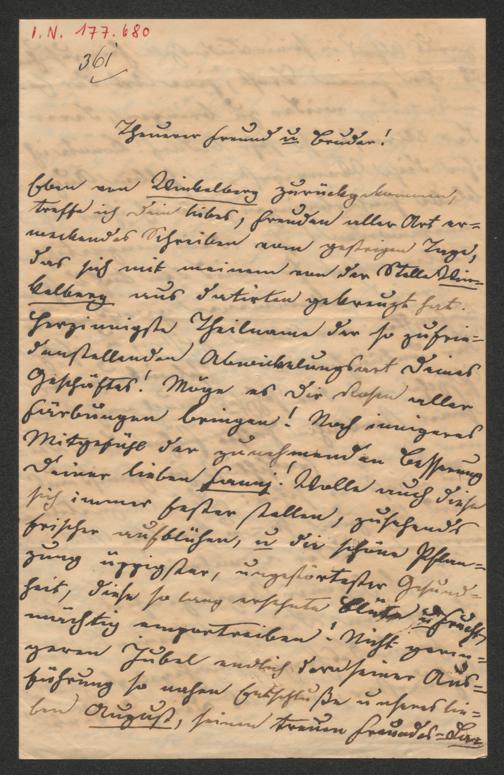 I. N. 177.680
361
Theuerer Freund u. Bruder!
Eben von Winkelberg zurückgekommen,
treffe ich dein liebes, Freuden aller Art er-
weckendes Schreiben vom gestrigen Tage,
das sich mit meinem von der Stelle Win-
kelberg aus datirten gekreuzt hat.
Herzinnigste Theilname der so zufrie-
denstellenden Abwickelungsart deines
Geschäftes! Möge es dir Rosen aller
Färbungen bringen! Noch innigeres
Mitgefühl der zunehmenden Besserung
deiner lieben Fanny! Wolle auch diese
sich immer fester stellen, zusehends
frischer aufblühen, u. die schöne Pflan-
zung üppigster, ungestörtester Gesund-
heit, diese so lang ersehnte Blüte u. Frucht,
mächtig emportreiben! Nicht gerin-
geren Jubel endlich dem seiner Aus-
führung so nahen Entschluße unseres lie-
ben August, seinen treuen Freundes-